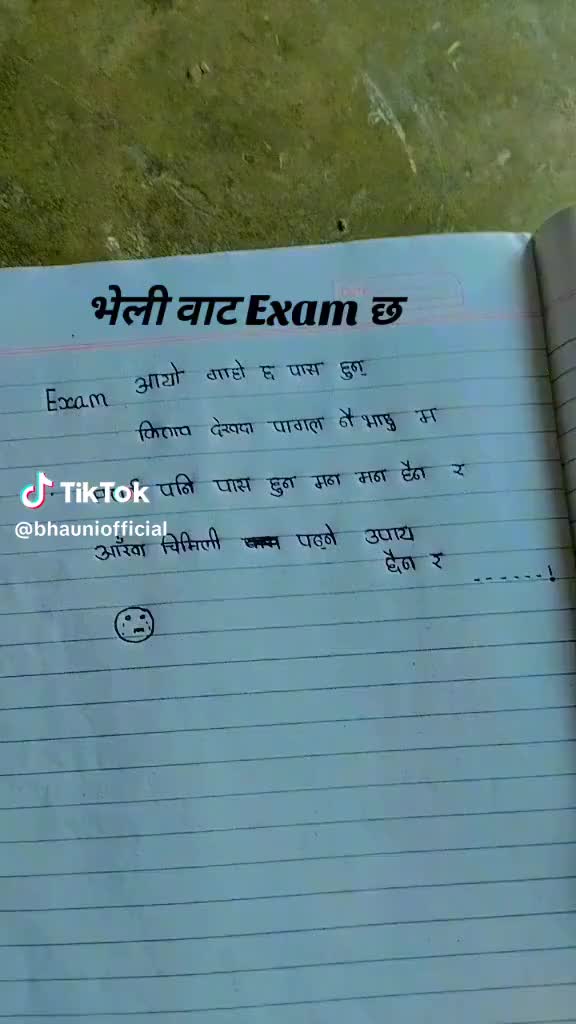 भेली वाट Exam छ
Exam आयो गाह्रो छ पास हुन्
किताप देख्दा पागल नै भाछु म
पनि पास हुन मन मन हैन र
TikTok
@bhauniofficial
आँखा चिमिली पढ्ने उपाय
छैन र ------!